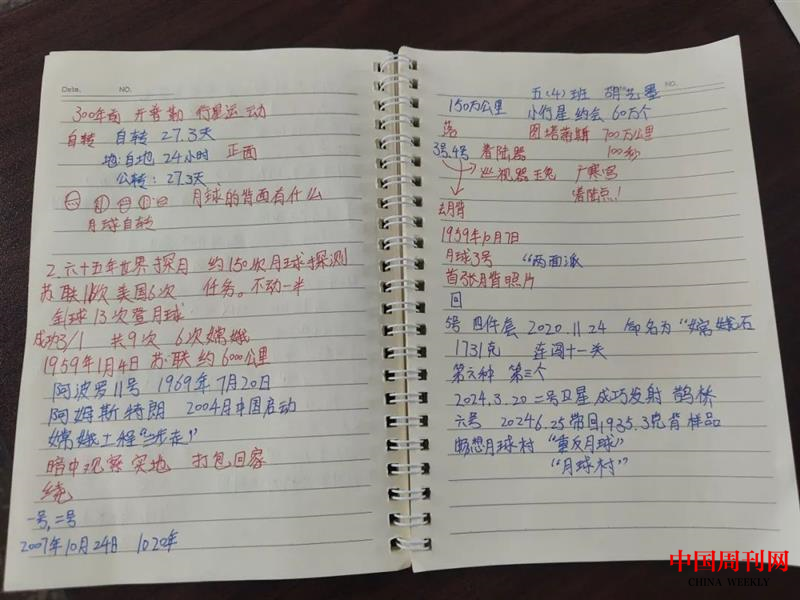 Date. NO.
300年前 开普勒 行星运动
自转 自转 27.3天
地:自地 24小时 正面
公转:27.3天
月球的背面有什么
月球自转
2.六十五年世界探月 约150次月球探测
苏联116次 美国6次 任务。不动一半
全球13次登月球
成功3/1 共9次 6次嫦娥
1959年1月4日 苏联 约6000公里
阿波罗11号 1969年7月20日
阿姆斯特朗 2004月中国启动
嫦娥工程"三步走"
暗中观察 实地 打包回家
绕
一号,二号
2007年10月24日 1020年
NO.
五(4)班 胡艺墨
150万公里 小行星 约会 60万个
落 图塔蒂斯 700万公里
3号.4号 着陆器 100秒
巡视器 玉兔 广寒宫
着陆点!
月背
1959年10月7日
月球3号 "两面派
首张月背照片
回
5号 四件套 2020.11 24 命名为"嫦娥石
1731克 连闯十一关
第六种 第三个
2024.3.20 二号卫星成功发射 鹊桥
六号 2024 6.25 带回1935.3克背样品
畅想月球村 "重反月球"
"月球村"
中国周刊网
CHINA WEEKLY